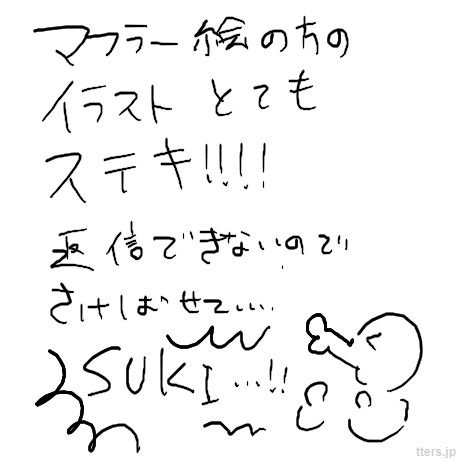 マフラー絵の方の
イラスト とても
ステキ!!!!
返信できないので
さけばせて...
SUKI...!!
tters.jp